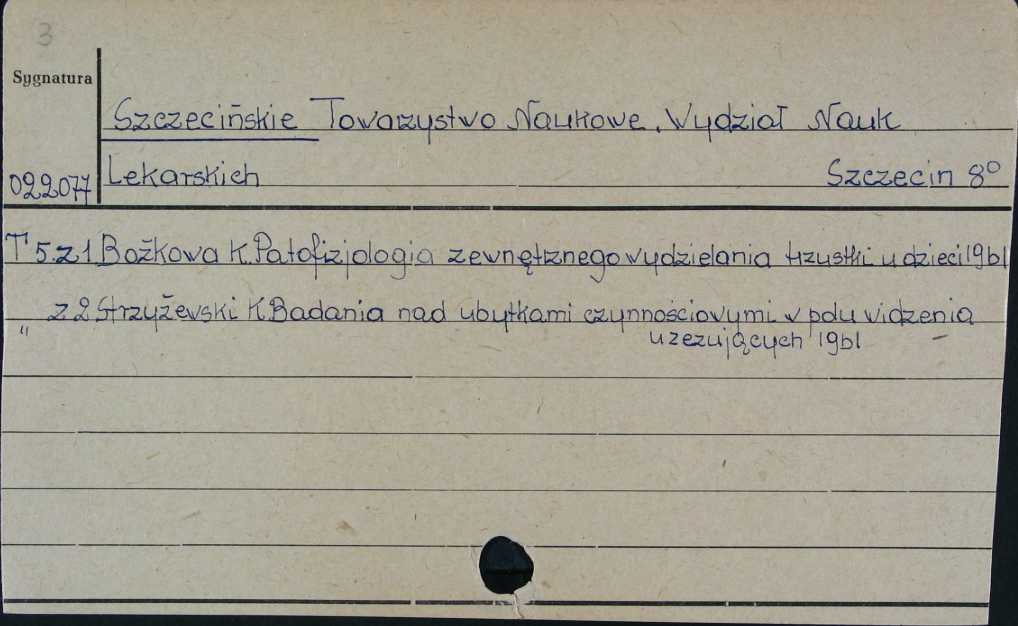 3
Sygnatura
Szczecińskie Towarzystwo Naukowe. Wydział Nauk
022077 Lekarskich Szczecin 8°
T 5. z 1 Bożkowa K. Patofizjologia zewnętrznego wydzielania trzustki u dzieci 1961
" z 2 Strzyżewski K. Badania nad ubytkami czynnościowymi w polu widzenia
uzezujących 1961